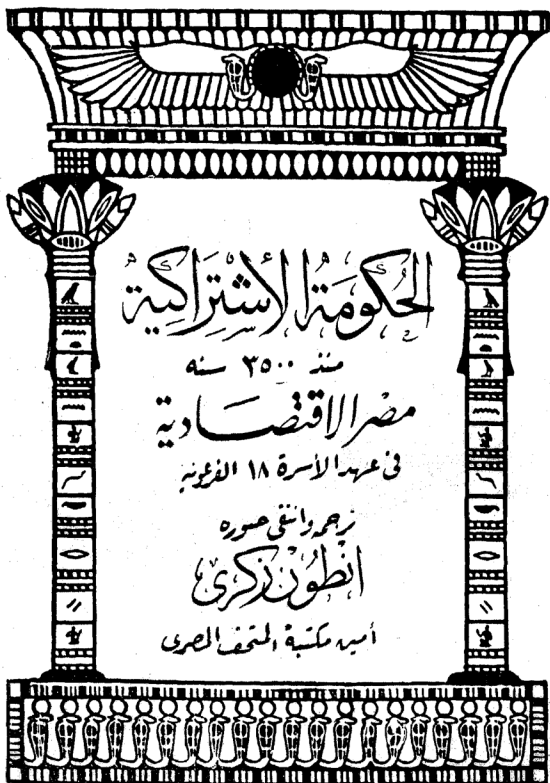 الحُكُومَة الأُشْتِرَاكِية
منذ ٣٥٠٠ سنه
مصر الاقتصادية
فى عهد الأسرة ١٨ الفرعونيه
ترجمه وانتقى صوره
انطون زكرى
أمين مكتبة المتحف المصرى